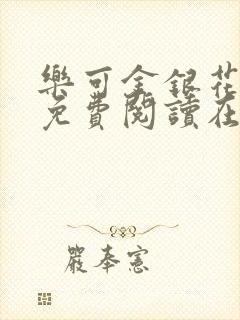 樂可金銀花
免費閱讀在
嚴奉憲